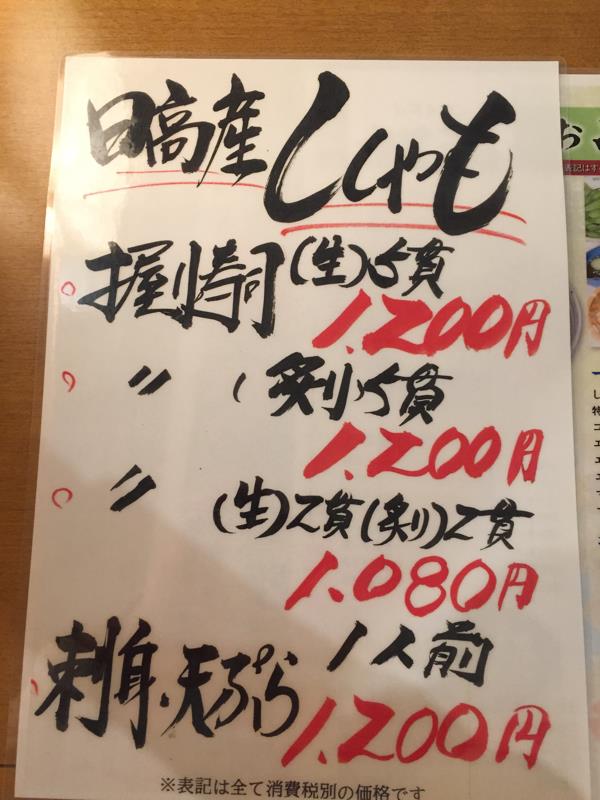 日高産 ししゃも
握り寿司 (生)5貫
1,200円
〃 (炙り)5貫
1,200円
〃 (生)2貫(炙り)2貫
1,080円
刺身・天ぷら 1人前
1,200円
※表記は全て消費税別の価格です
お
表記はす
し
特
コ
エ
エ